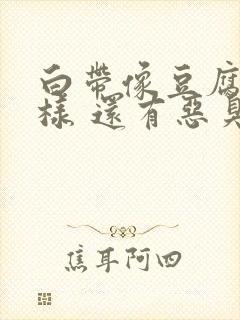 白帶像豆腐
樣 還有惡臭
焦耳阿四